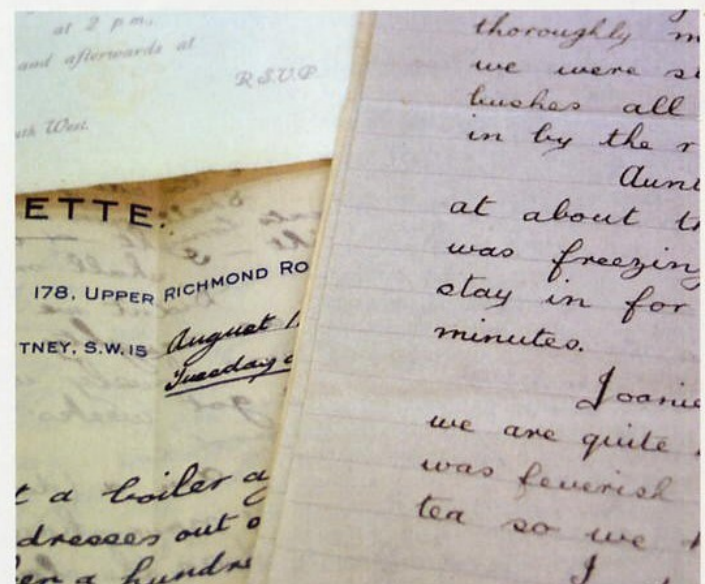 at 2 p.m.,
and afterwards at
R.S.V.P.
uth West.
ETTE.
178, UPPER RICHMOND RO
TNEY, S.W.15
August 1
Tuesday
t a boiler a
dresses out o
en a hundre
thoroughly m
we were st
bushes all
in by the r
Aunt
at about th
was freezing
stay in for
minutes.
Joanie
we are quite
was feverish
tea so we